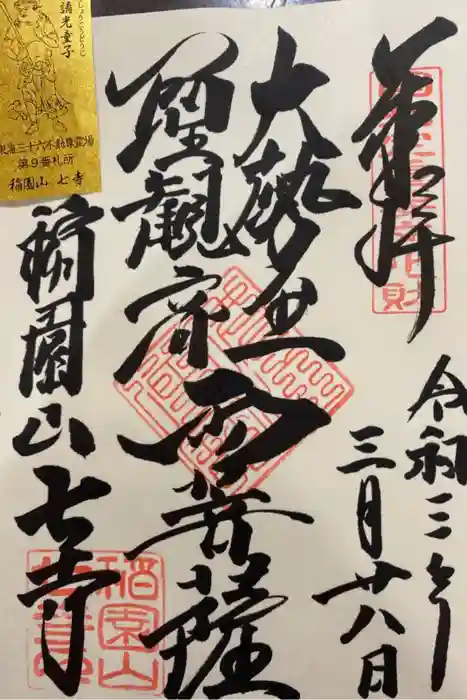 奉拝
令和三年
三月廿八日
大勢至
聖観音
両菩薩
稲園山七寺
稲園山
請光童子
しょうこうどうじ
東海三十六不動尊霊場
第9番札所
稲園山 七寺